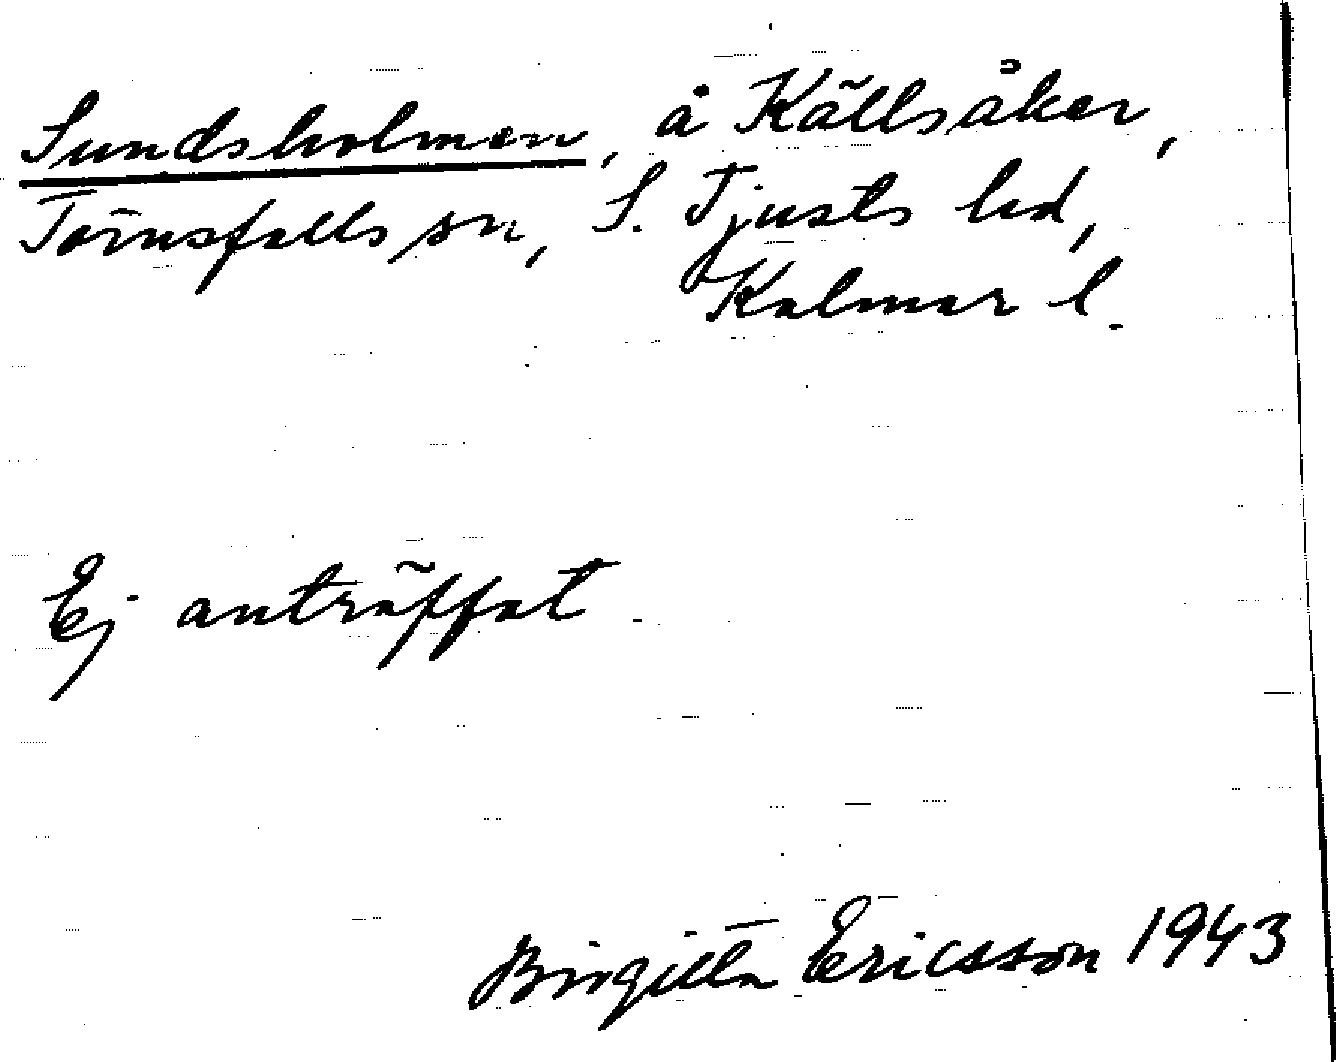 Sundsholmen, å Källsåker,
Törnsfalls sn, S. Tjusts hd,
Kalmar l.
Ej anträffat.
Birgitta Ericsson 1943